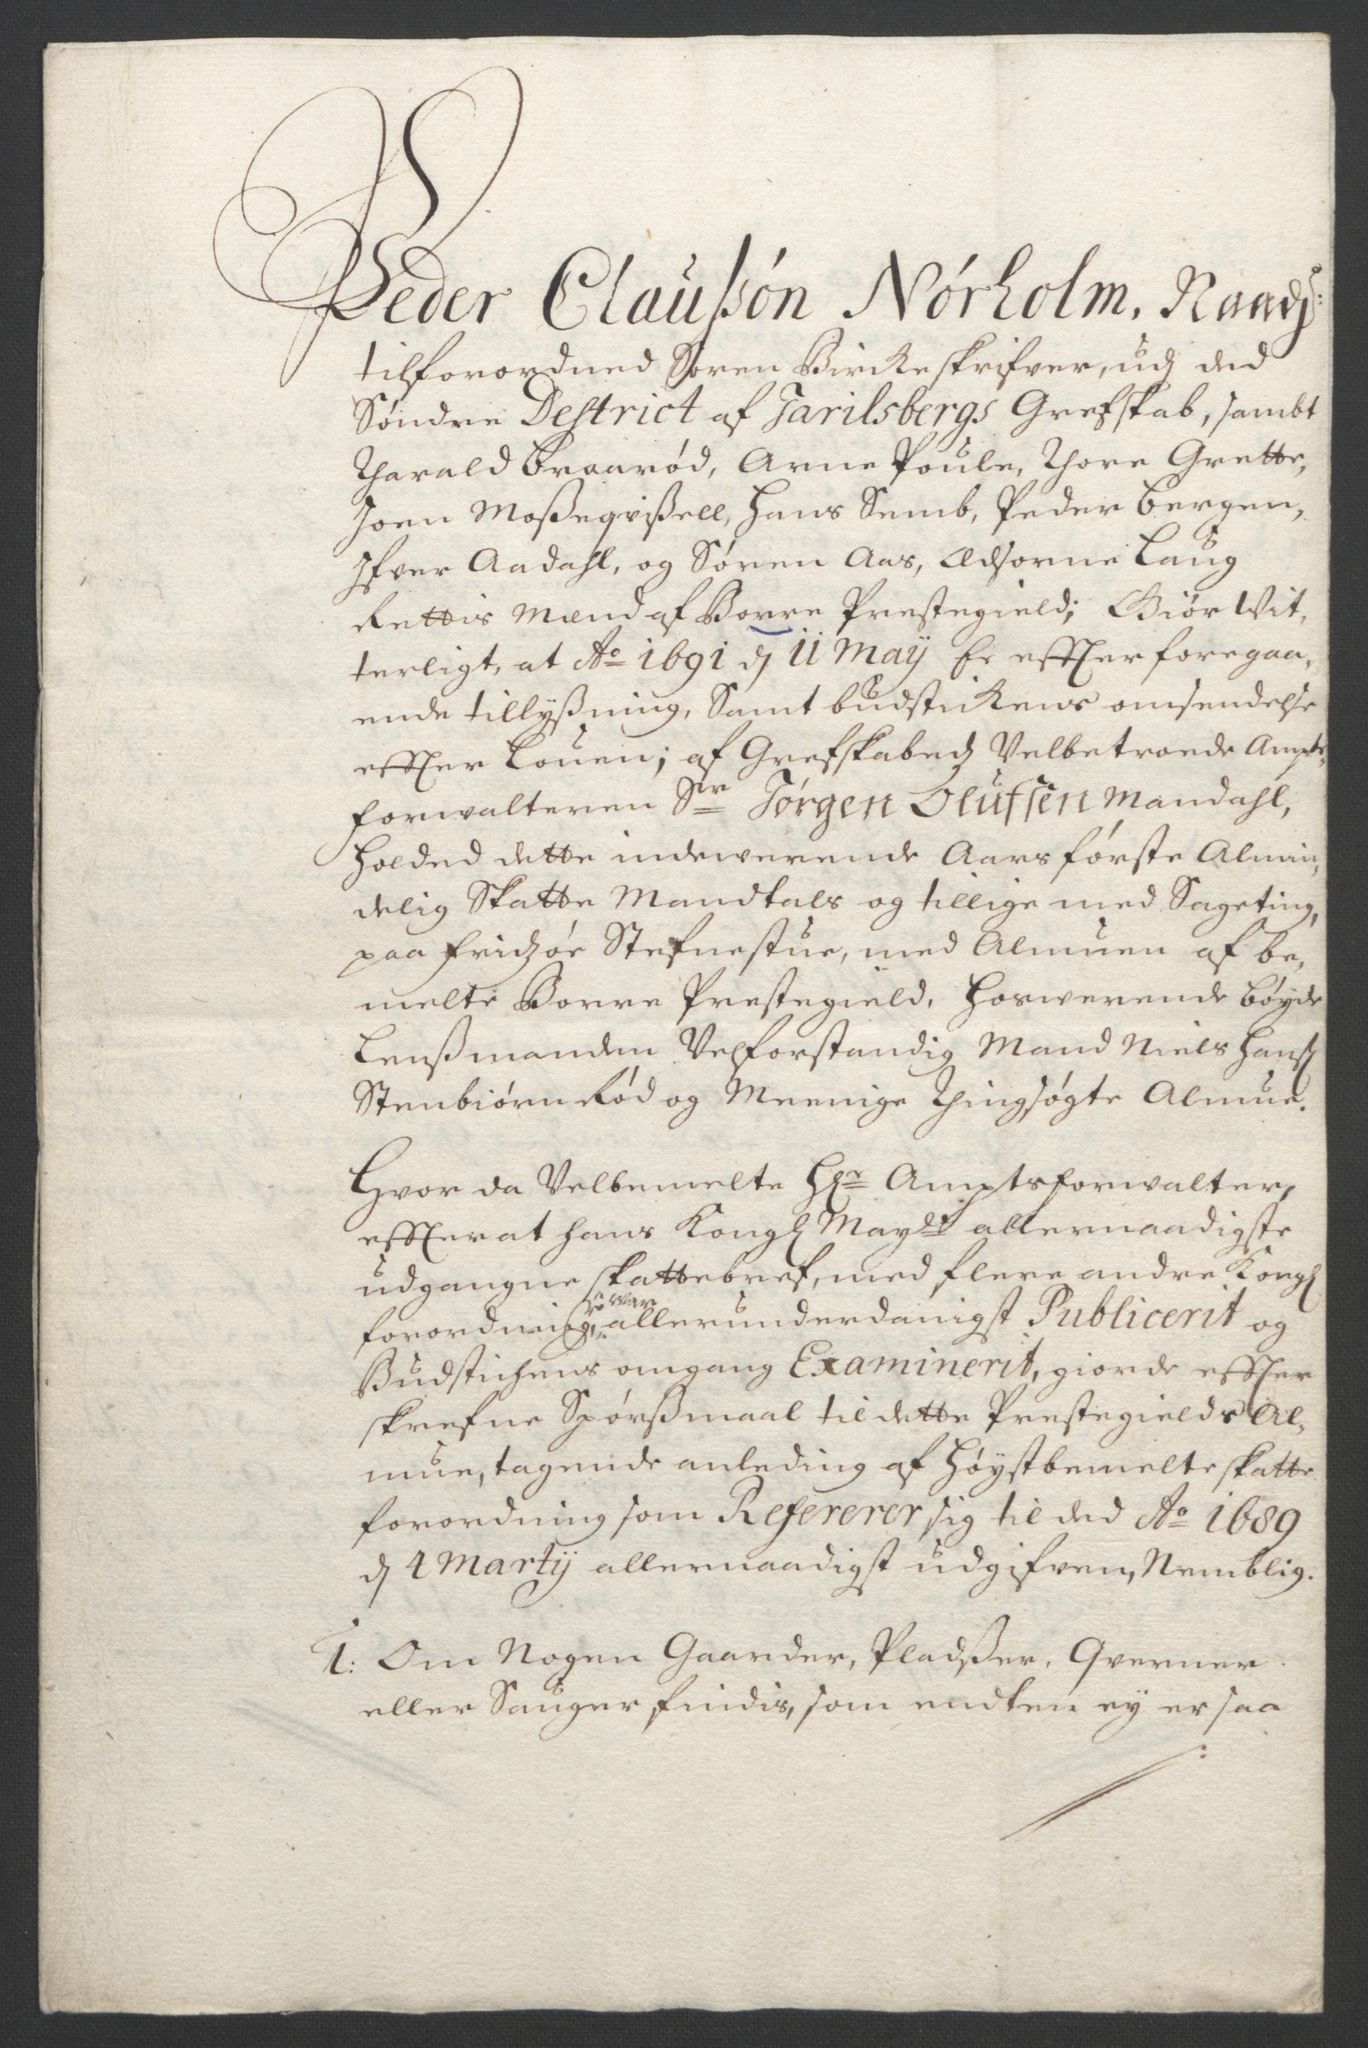 Peder Claussøn Nørholm, Naads:
tilforordned Soren Birckeskrifver, udj ded
Søndre Destrict af Jarilsbergs Grefskab, sambt
Tharald Braarød, Arne Poule, Thore Grette,
Joen Moßeqvißell, Hans Semb, Peder Bergen,
Ifver Aadahl, og Søren Aas, Edsorne Laug
Rettis Mænd af Borre Prestegield; Giør Wit,
terligt, at Ao 1691 dj 11 Maÿ Er effter foregaa,
ende tillyßning, Samt budstickens omsendelse
effter Louen; af Grefskabedz Velbetroede Ampts
forwalteren Sr Jørgen Olufsen Mandahl,
Holded dette indewerende Aars første Almin,
delig Skatte Mandtals og tillige med Sageting,
paa Fridzøe Stefnestue, med Almuen af be,
melte Borre Prestegield, Hoswerende Bøyde
Lenßmanden Velforstandig Mand Niels Hanß
Stenbiørnrød og Meenige Thingsøgte Almue.
Hvor da Velbemelte Hr Amptsforwalter,
effterat hans Kongl Mayts allernaadigste
udgangne skattebref, med flere andre Kongl
forordning, war allerunderdanigst Publicerit og
Budstichens omgang Examinerit, giorde effter
skrefne Spørßmaal til dette Prestegields Al,
mue, tagende anleding af Høystbemelte skatte
forordning som Refererer sig til ded Ao 1689
dj 4 Martÿ allernaadigst udgifven, Nemblig.
1: Om Nogen Gaarder, Pladßer, Qverner
eller Sauger findis, som endten ey er saa